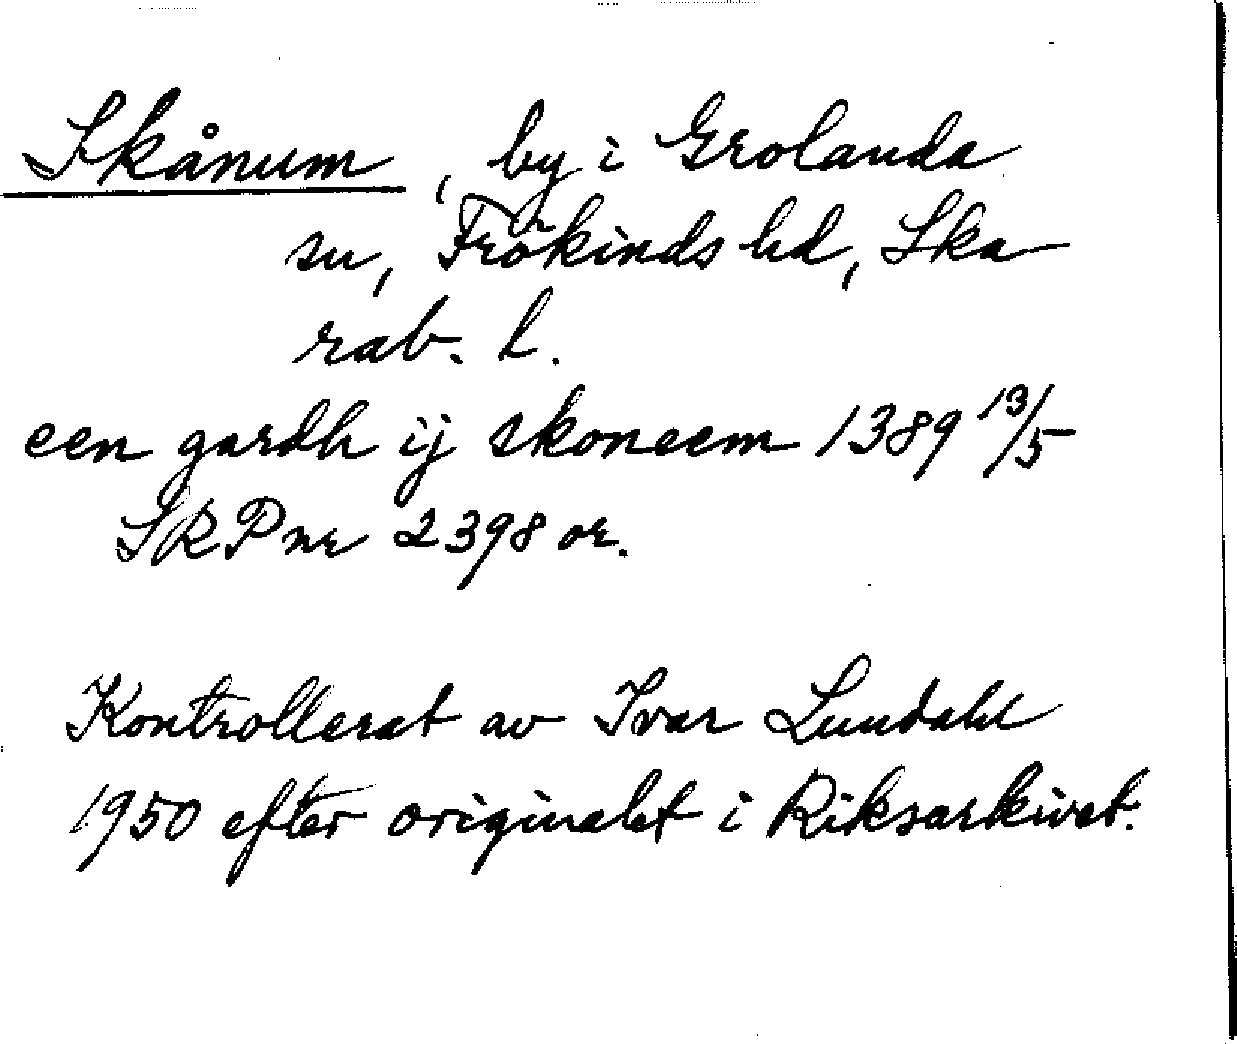 Skånum, by i Grolanda
sn, Frökinds hd, Ska
rab. l.
een gardh ij skoneem 1389 13/5
SRP nr 2398 or.
Kontrollerat av Ivar Lundahl
1950 efter originalet i Riksarkivet.